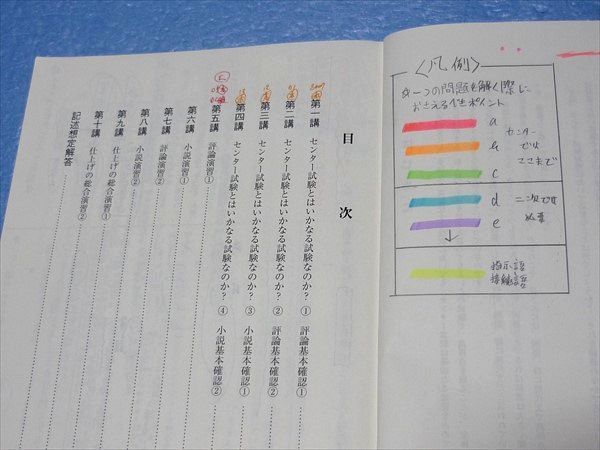 目次
第一講 センター試験とはいかなる試験なのか? ① 評論基本確認①
第二講 センター試験とはいかなる試験なのか? ② 評論基本確認②
第三講 センター試験とはいかなる試験なのか? ③ 小説基本確認①
第四講 センター試験とはいかなる試験なのか? ④ 小説基本確認②
第五講 評論演習①
第六講 小説演習①
第七講 評論演習②
第八講 小説演習②
第九講 仕上げの総合演習①
第十講 仕上げの総合演習②
記述想定解答
〈凡例〉
一つの問題を解く際に
おさえるべきポイント
a
b
c
センター
では
ここまで
d
e
二次では
必要
指示語
接続語